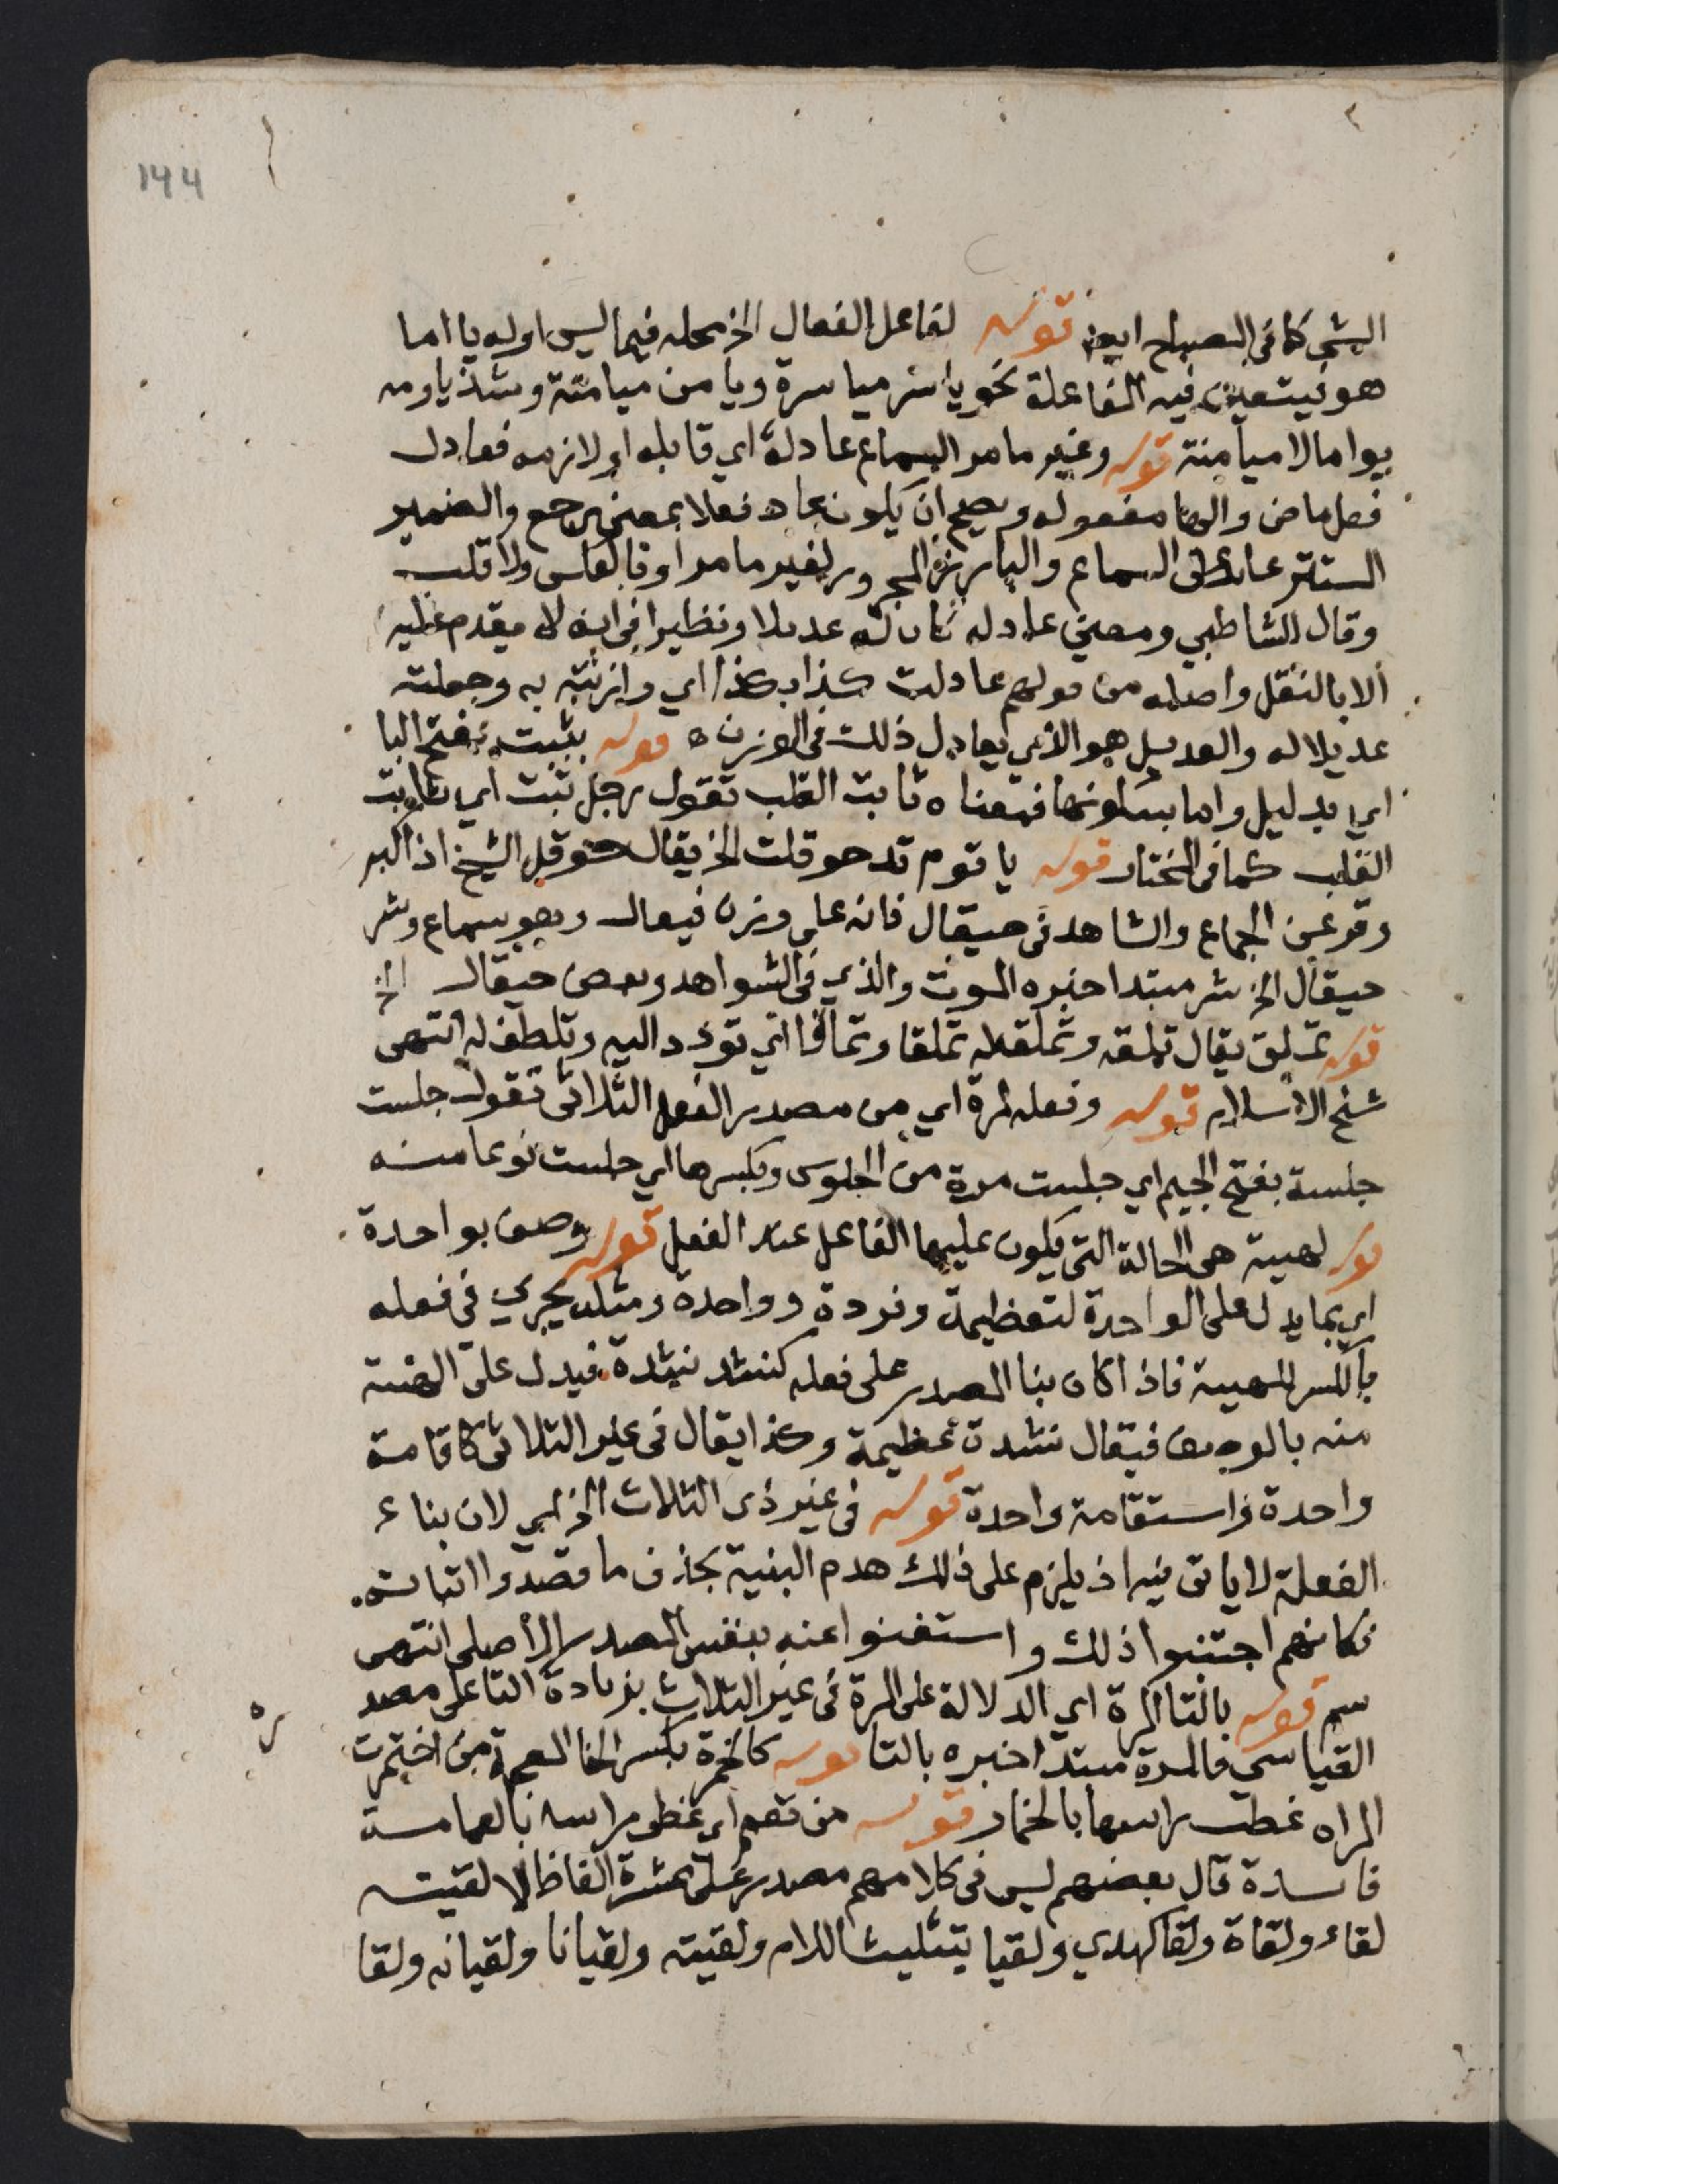 144
الشي كما في المصباح ايضا قوله لفاعل الفعال الخ محله فيما ليس اوله يا اما
هو فيتعين فيه المفاعلة نحو ياسر مياسرة ويامن ميامنة وشذ ياومه
يواما لا ميامنة قوله وغير ما مر السماع عادله اي قابله او لازمه فعادل
فعل ماض والها مفعوله ويصح ان يكون عاد فعلا بمعنى رجع والضمير
المستتر عائد على السماع والبارز المجرور لغير ما مر او فالعكس ولا قلب
وقال الشاطبي ومعنى عادله كان له عديلا ونظيرا في انه لا يقدم عليه
الا بالنقل واصله من قولهم عادلت كذا بكذا اي وازنته به وجعلته
عديلا له والعديل هو الذي يعادل ذلك في الوزن قوله بثبت بفتح البا
اي بدليل واما بسكونها فمعناه ثابت القلب تقول رجل ثبت اي ثابت
القلب كما في المختار قوله يا قوم قد حوقلت الخ يقال حوقل الشيخ اذا كبر
وفتر عن الجماع والشاهد في حيقال فانه على وزن فيعال وهو سماع وشر
حيقال الخ شر مبتدا خبره الموت والذي في الشواهد وبعض حيقال الخ
قوله تملق يقال تملقه وتملق له تملقا وتملاقا اي تودد اليه وتلطف له انتهى
شيخ الاسلام قوله وفعله لمرة اي من مصدر الفعل الثلاثي تقول جلست
جلسة بفتح الجيم اي جلست مرة من الجلوس وبكسرها اي جلست نوعا منه
قوله لهيية هي الحالة التي يكون عليها الفاعل عند الفعل قوله وصف بواحدة
اي بما يدل على الواحدة لتعظيمة وفردة وواحدة ومثله يجري في فعله
بالكسر للهيية فاذا كان بنا المصدر على فعله كنشد نشدة فيدل على الهيية
منه بالوصف فيقال نشدة عظيمة وكذا يقال في غير الثلاثي كاقامة
واحدة واستقامة واحدة قوله في غير ذي الثلاث الخ اي لان بناء
الفعلة لا ياتي فيه اذ يلزم على ذلك هدم البنية بحذف ما قصدوا اثباته
فكانهم اجتنبوا ذلك واستغنوا عنه بنفس المصدر الاصلي انتهى
سم قوله بالتا المرة اي الدلالة على المرة في غير الثلاث بزيادة التا على مصد
ره
القياسي فالمرة مبتدا خبره بالتا قوله كالخمرة بكسر الخا المعجمة من اختمرت
المراه غطت راسها بالخمار قوله من تعمم اي غطى راسه بالعمامة
فايدة قال بعضهم ليس في كلامهم مصدر على عشرة الفاظ الا لقيته
لقاء ولقاة ولقا كهدي ولقيا بتثليث اللام ولقيته ولقيانا ولقيانه ولقا